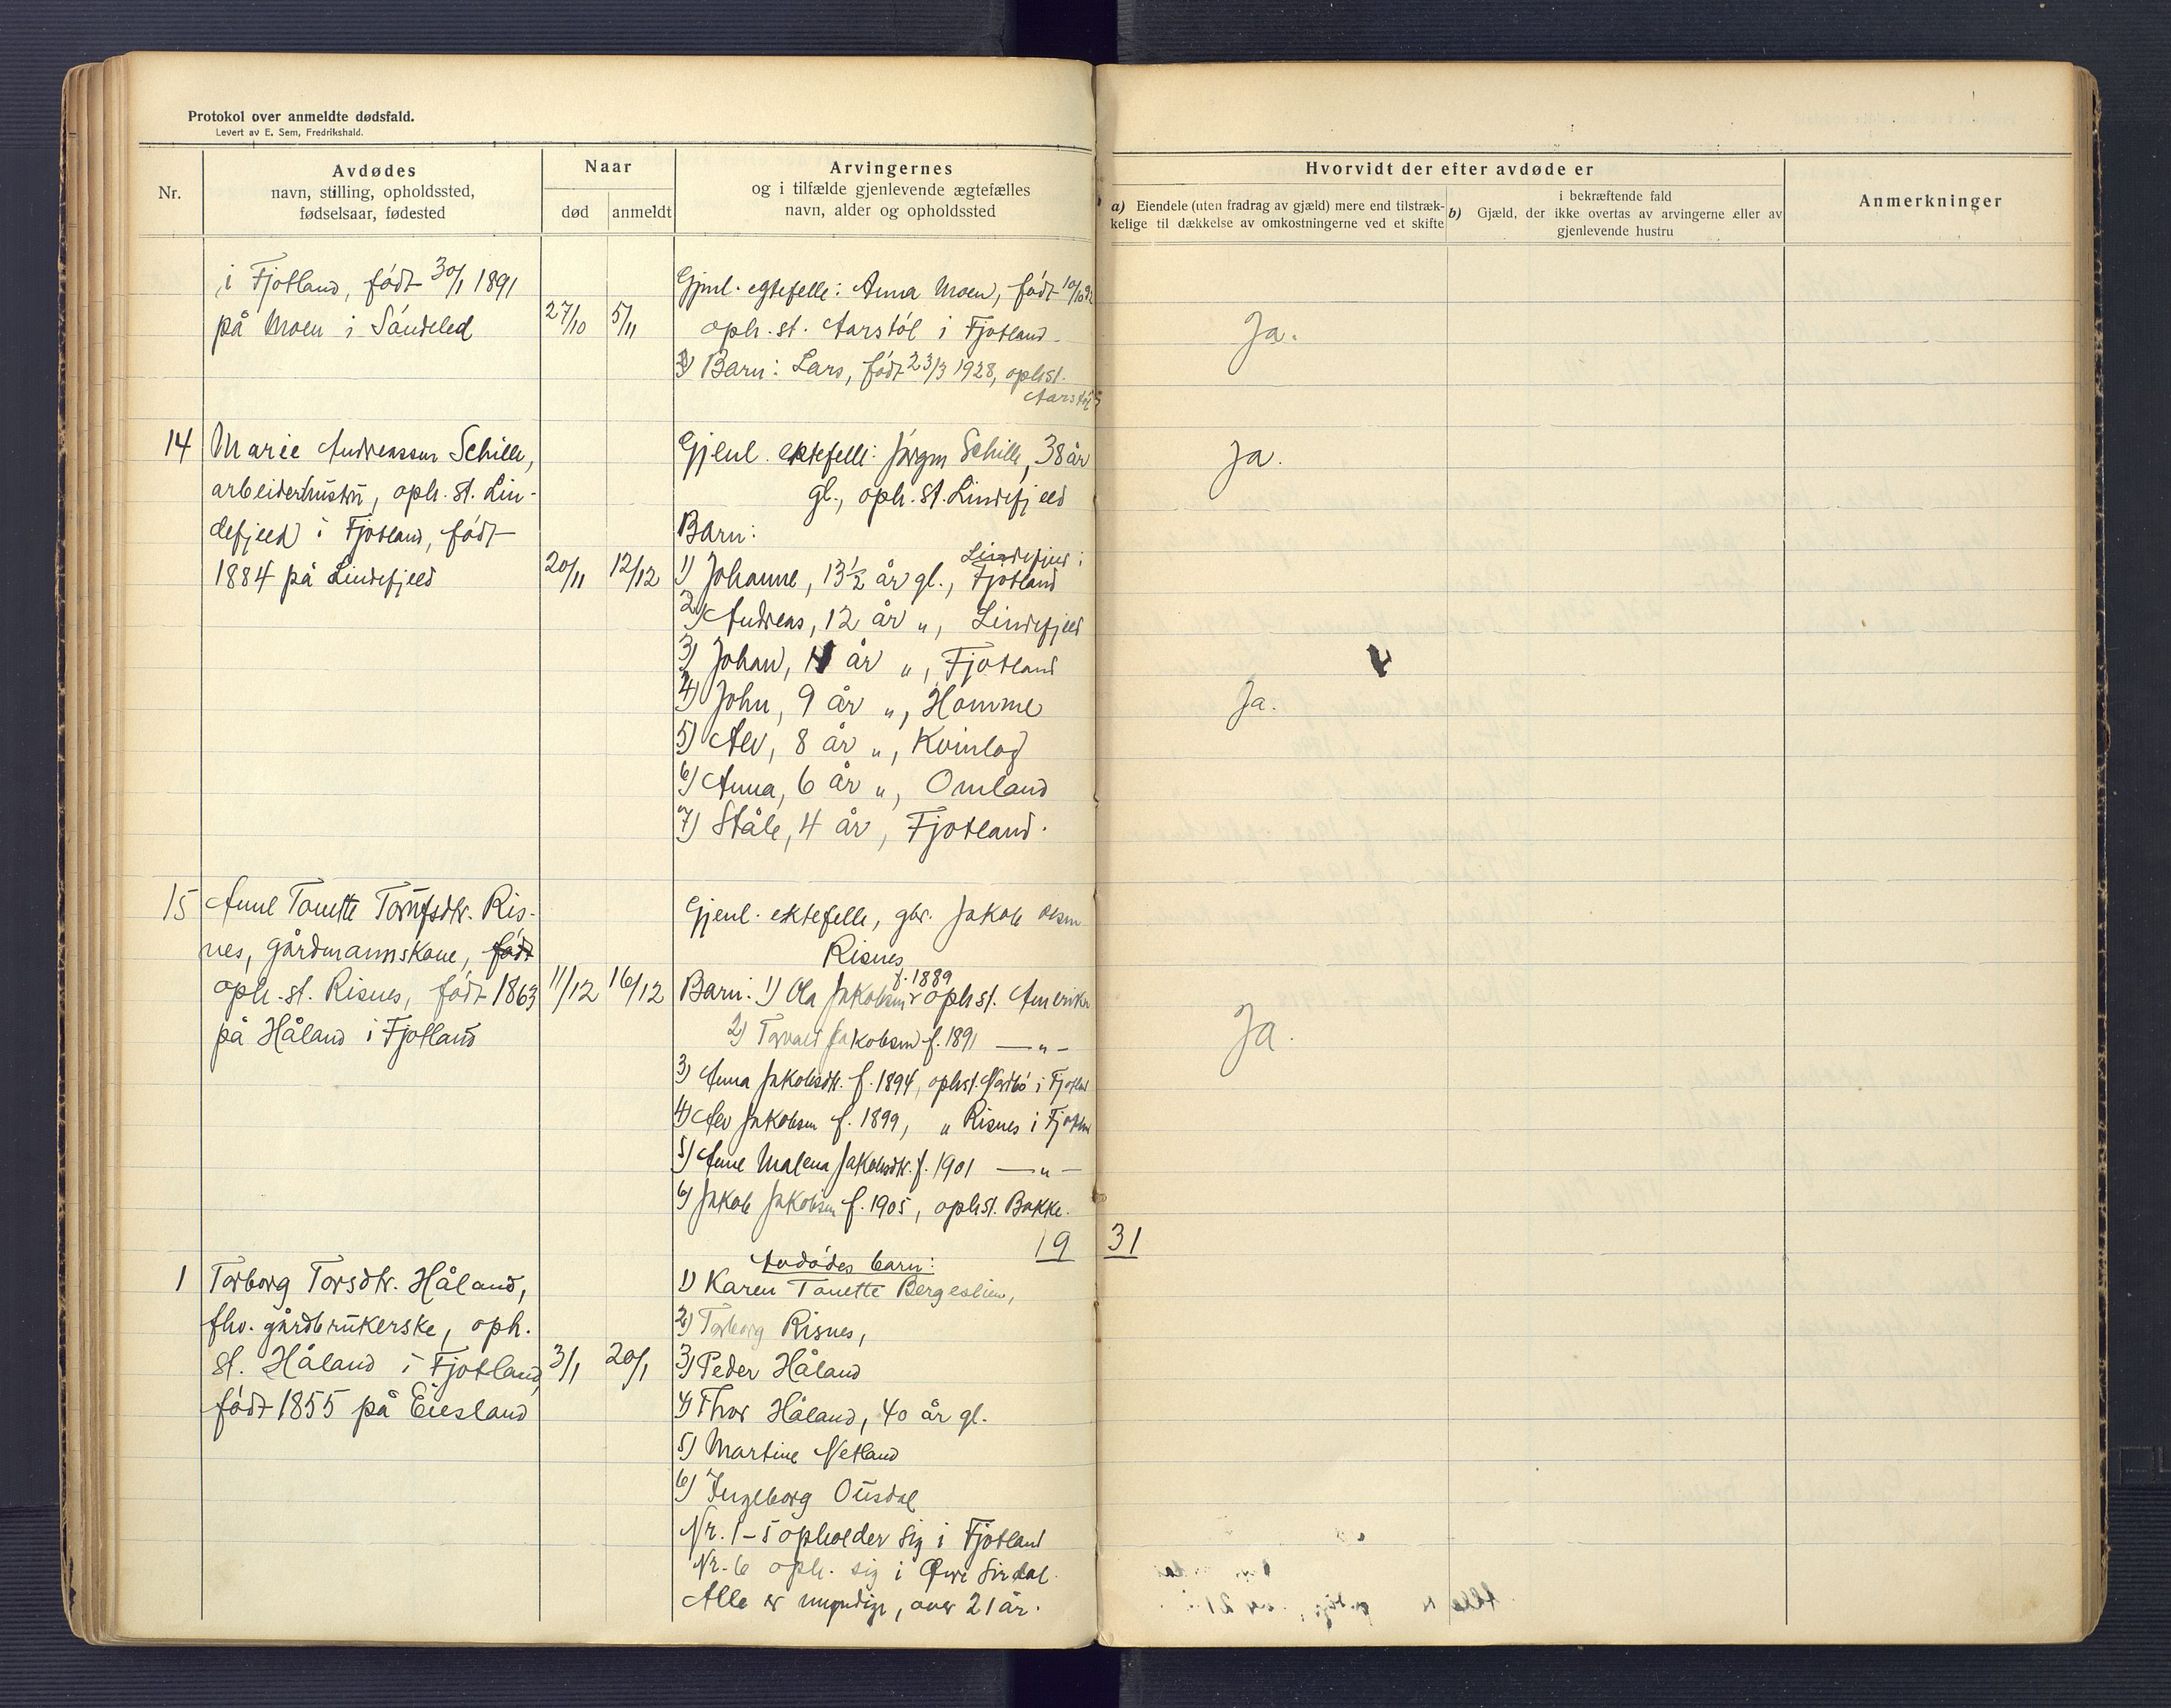 Protokol over anmeldte dødsfald.
Levert av E. Sem, Fredrikshald.
Nr.
Avdødes
navn, stilling, opholdssted,
fødselsaar, fødested
Naar
død
anmeldt
Arvingernes
og i tilfælde gjenlevende ægtefælles
navn, alder og opholdssted
Hvorvidt der efter avdøde er
a) Eiendele (uten fradrag av gjæld) mere end tilstræk-
kelige til dækkelse av omkostningerne ved et skifte
b) Gjæld, der i bekræftende fald
ikke overtas av arvingerne eller av
gjenlevende hustru
Anmerkninger
i Fjotland, født 30/1 1891
på Moen i Søndeled
27/10
5/11
Gjenl. egtefelle: Anna Moen, født 10/10
oph. st. Aarstøl i Fjotland
Barn: Lars, født 23/3 1928, ophst.
Aarstøl
Ja.
14
Marie Andreassen Schille,
arbeiderhustru, oph. st. Lin-
defjeld i Fjotland, født
1884 på Lindefjeld
20/11
12/12
Gjenl. ektefelle: Jørgen Schille, 38 år
gl., oph. st. Lindefjeld
Barn:
1) Johanne, 13½ år gl., Lindefjeld i
Fjotland
2) Andreas, 12 år ", Lindefjeld
3) Johan, 11 år ", Fjotland
4) John, 9 år ", Homme
5) Alv, 8 år ", Kvinlog
6) Anna, 6 år ", Omland
7) Ståle, 4 år, Fjotland.
Ja.
Ja.
15
Anne Tonette Torufsdtr. Ris-
nes, gårdmannskone, født
oph. st. Risnes, født 1863
på Håland i Fjotland
11/12
16/12
Gjenl. ektefelle, gbr. Jakob Olsen
Risnes
Barn: 1) Ola Jakobsen f. 1889 ophst. Amerika
2) Torvald Jakobsen f. 1891 — " —
3) Anna Jakobsdtr. f. 1894, ophst. Nordbø i Fjotland
4) Alv Jakobsen f. 1899, " Risnes i Fjotland
5) Anne Malena Jakobsdtr. f. 1901 — " —
6) Jakob Jakobsen f. 1905, ophst. Bakke.
Ja.
19 31
1
Torborg Torsdtr. Håland,
fhv. gårdbrukerske, oph.
st. Håland i Fjotland,
født 1855 på Eiesland
3/1
20/1
Avdødes barn:
1) Karen Tonette Bergeslien,
2) Torborg Risnes,
3) Peder Håland
4) Thor Håland, 40 år gl.
5) Martine Netland
6) Ingeborg Ousdal
Nr. 1-5 opholder sig i Fjotland
Nr. 6 oph. sig i Øvre Sirdal.
Alle er myndige, over 21 år.